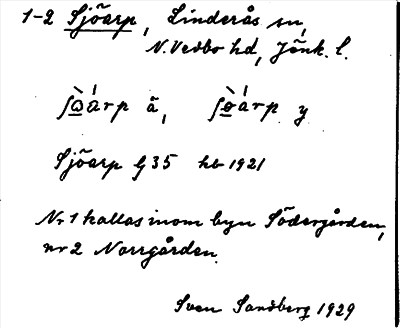 1-2 Sjöarp, Linderås sn,
N. Vedbo hd, Jönk. l.
ʃὼ̱árp ä, ʃꝋ̱̀árp y
Sjöarp G 35 hb 1921
Nr 1 kallas inom byn Södergården,
nr 2 Norrgården.
Sven Sandberg 1929